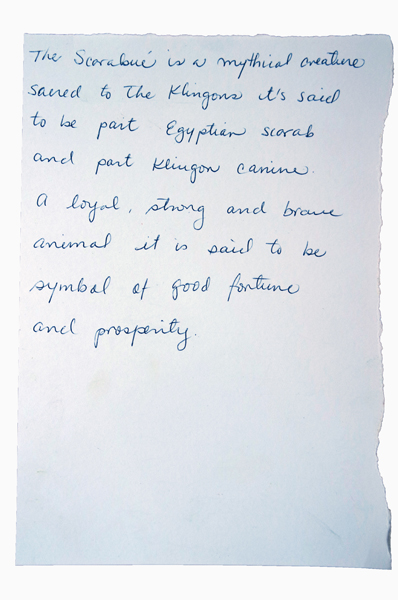 The Scarabué is a mythical creature
sacred to The Klingons it's said
to be part Egyptian scarab
and part Klingon canine.
A loyal, strong and brave
animal it is said to be
symbol of good fortune
and prosperity.